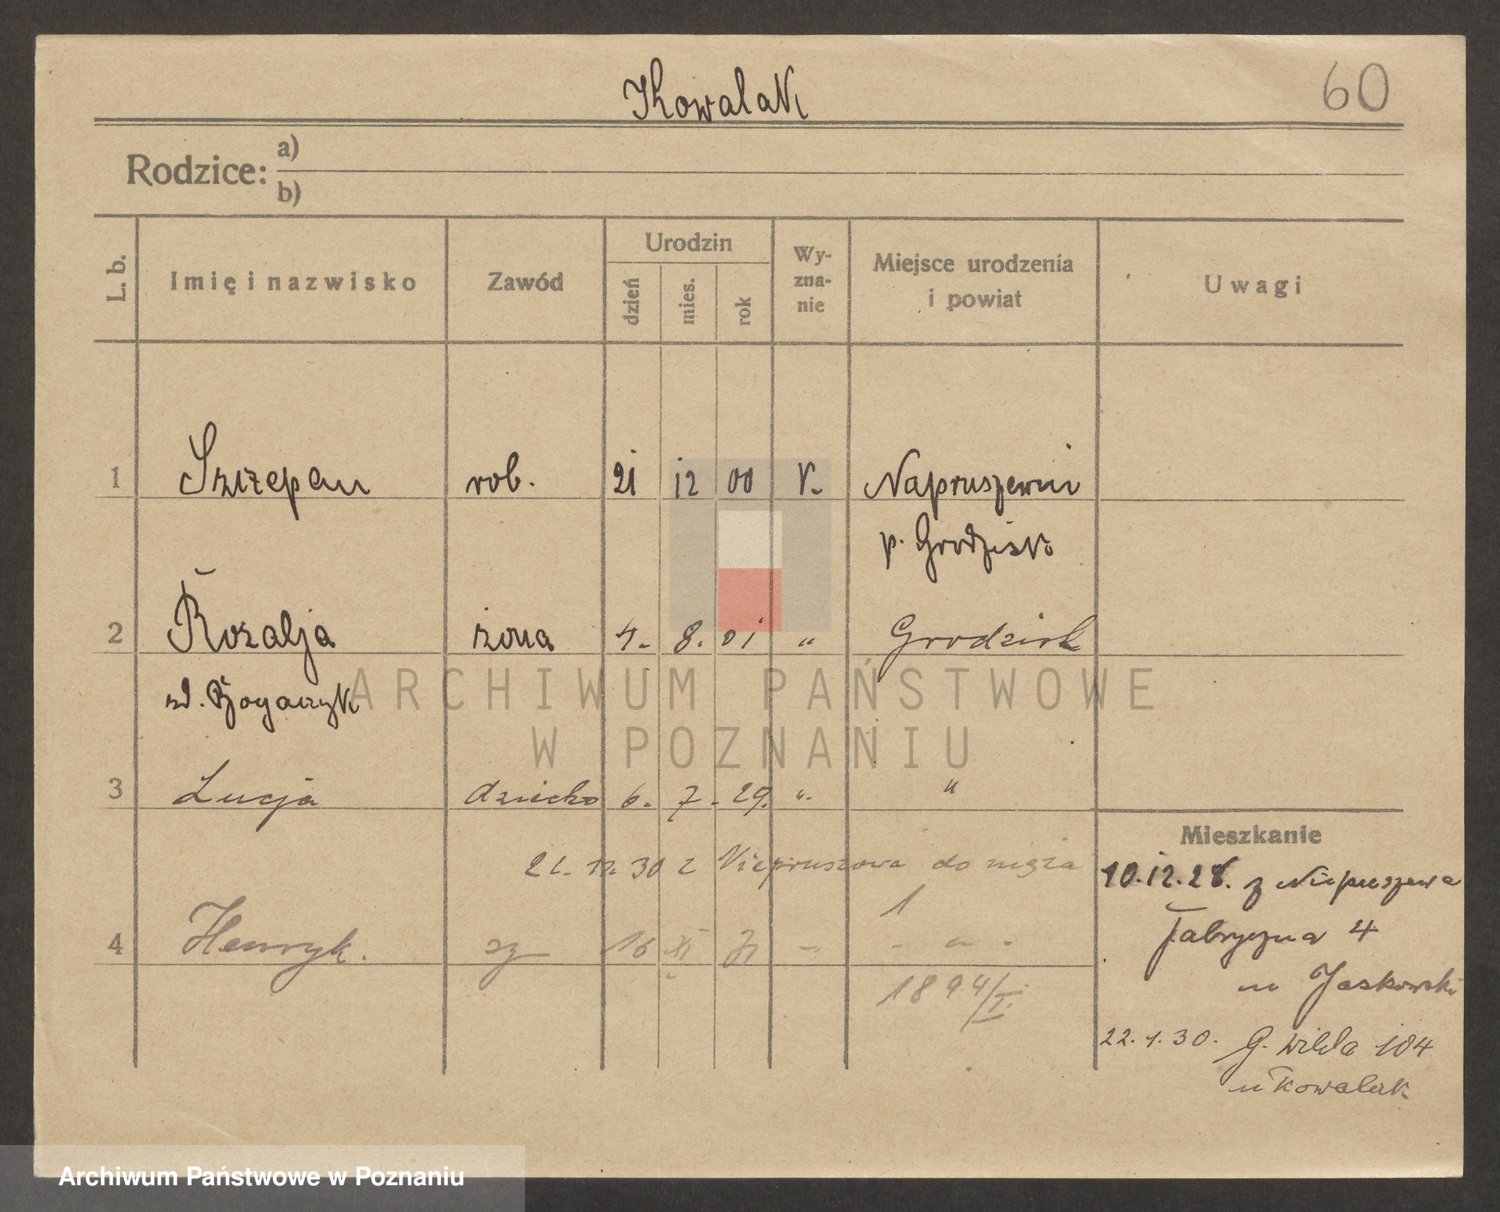 Kowalak
60
Rodzice:
a)
b)
L. b.
Imię i nazwisko
Zawód
Urodzin
dzień
mies.
rok
Wy-
zna-
nie
Miejsce urodzenia
i powiat
Uwagi
1 Szczepan rob. 21 12 00 r. Napruszewni
p. Grodzisk
2 Rozalja żona 4. 8. 01 " Grodzisk
3 Lucja dziecko 6. 7. 29. " "
21. 12. 30 z Niepruszewa do męża
1
4 Henryk. 16 XI
1894/I.
Mieszkanie
10.12.28. z Niepruszewa
Fabryczna 4
u Jaskowski
22. 1. 30. G. Wilda 104
u Kowalak
ARCHIWUM PAŃSTWOWE
W POZNANIU
Archiwum Państwowe w Poznaniu